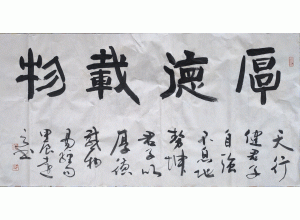 厚德載物
天行
健君子
自強
不息地
勢坤
君子以
厚德
載物
易經句